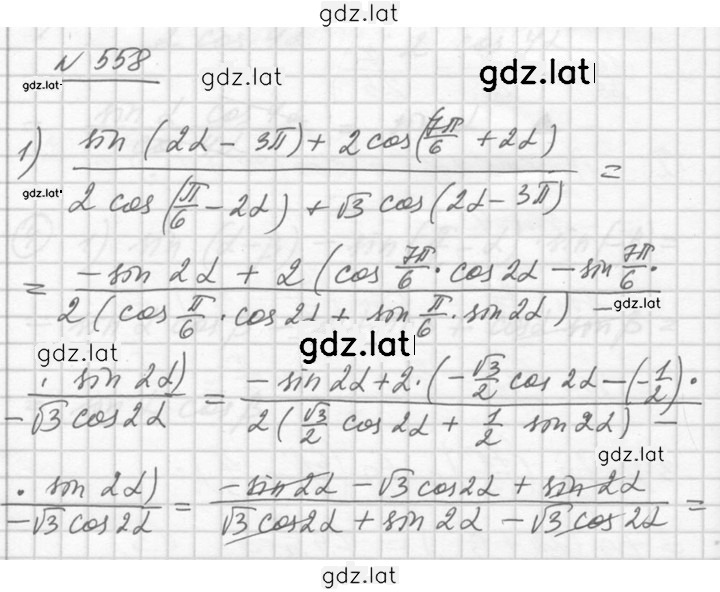 gdz.lat
N 558
gdz.lat gdz.lat gdz.lat
1) sin (2α − 3π) + 2 cos(7π/6 + 2α)
gdz.lat 2 cos(π/6 − 2α) + √3 cos(2α − 3π) =
= −sin 2α + 2 (cos 7π/6 · cos 2α − sin 7π/6 ·
2 (cos π/6 · cos 2α + sin π/6 · sin 2α) − gdz.lat
gdz.lat gdz.lat
· sin 2α) = −sin 2α + 2 · (−√3/2 cos 2α − (−1/2) ·
−√3 cos 2α 2 (√3/2 cos 2α + 1/2 sin 2α) −
gdz.lat
· sin 2α) = −sin 2α − √3 cos 2α + sin 2α =
−√3 cos 2α √3 cos 2α + sin 2α − √3 cos 2α
gdz.lat